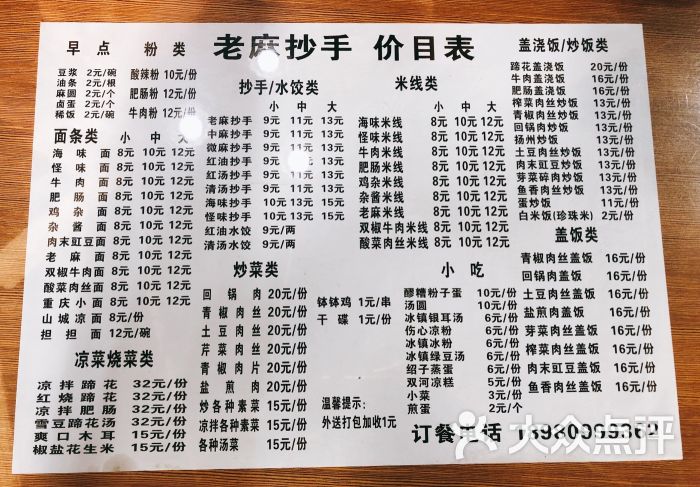 老麻抄手 价目表
早点
豆浆 2元/碗
油条 2元/根
麻圆 2元/个
卤蛋 2元/个
稀饭 2元/碗
粉类
酸辣粉 10元/份
肥肠粉 12元/份
牛肉粉 12元/份
面条类 小 中 大
海味面 8元 10元 12元
怪味面 8元 10元 12元
牛肉面 8元 10元 12元
肥肠面 8元 10元 12元
鸡杂面 8元 10元 12元
杂酱面 8元 10元 12元
肉末豇豆面 8元 10元 12元
老麻面 8元 10元 12元
双椒牛肉面 8元 10元 12元
酸菜肉丝面 8元 10元 12元
重庆小面 8元 10元 12元
山城凉面 8元/份
担担面 12元/碗
凉菜烧菜类
凉拌蹄花 32元/份
红烧蹄花 32元/份
凉拌肥肠 32元/份
雪豆蹄花汤 32元/份
爽口木耳 15元/份
椒盐花生米 15元/份
抄手/水饺类
小 中 大
老麻抄手 9元 11元 13元
中麻抄手 9元 11元 13元
微麻抄手 9元 11元 13元
红油抄手 9元 11元 13元
红汤抄手 9元 11元 13元
清汤抄手 9元 11元 13元
海味抄手 10元 13元 15元
怪味抄手 10元 13元 15元
红油水饺 9元/两
清汤水饺 9元/两
米线类
小 中 大
海味米线 8元 10元 12元
怪味米线 8元 10元 12元
牛肉米线 8元 10元 12元
肥肠米线 8元 10元 12元
鸡杂米线 8元 10元 12元
杂酱米线 8元 10元 12元
老麻米线 8元 10元 12元
双椒牛肉米线 8元 10元 12元
酸菜肉丝米线 8元 10元 12元
炒菜类
回锅肉 20元/份
青椒肉丝 20元/份
土豆肉丝 20元/份
芹菜肉丝 20元/份
青椒肉片 20元/份
盐煎肉 20元/份
炒各种素菜 15元/份
凉拌各种素菜 15元/份
各种汤菜 15元/份
钵钵鸡 1元/串
干碟 1元/份
温馨提示:
外送打包加收1元
小吃
醪糟粉子蛋 10元/份
汤圆 10元/份
冰镇银耳汤 6元/份
伤心凉粉 6元/份
冰镇冰粉 6元/份
冰镇绿豆汤 6元/份
绍子蒸蛋 6元/份
双河凉糕 5元/份
小菜 3元/份
煎蛋 2元/个
盖浇饭/炒饭类
蹄花盖浇饭 20元/份
牛肉盖浇饭 16元/份
肥肠盖浇饭 16元/份
榨菜肉丝炒饭 13元/份
青椒肉丝炒饭 13元/份
回锅肉炒饭 13元/份
扬州炒饭 13元/份
土豆肉丝炒饭 13元/份
肉末豇豆炒饭 13元/份
芽菜碎肉炒饭 13元/份
鱼香肉丝炒饭 13元/份
蛋炒饭 11元/份
白米饭(珍珠米) 2元/份
盖饭类
青椒肉丝盖饭 16元/份
回锅肉盖饭 16元/份
土豆肉丝盖饭 16元/份
盐煎肉盖饭 16元/份
芽菜肉丝盖饭 16元/份
榨菜肉丝盖饭 16元/份
肉末豇豆盖饭 16元/份
鱼香肉丝盖饭 16元/份
订餐电话
大众点评